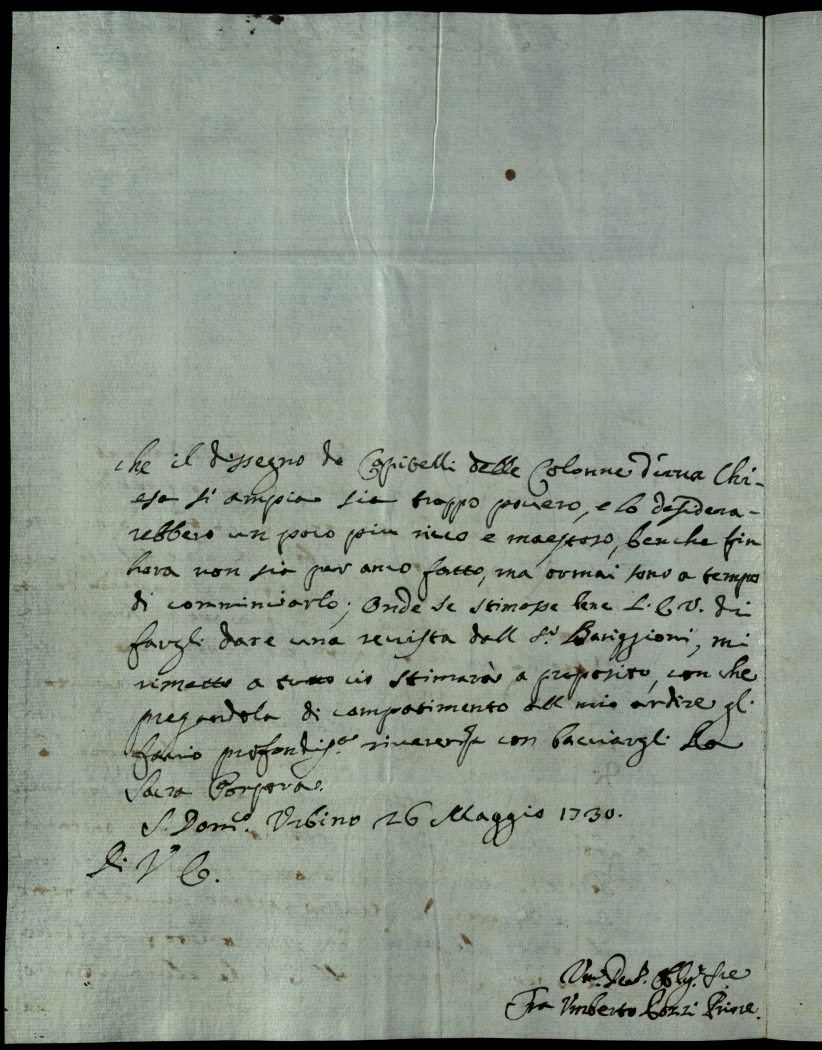 che il dissegno de Capitelli delle Colonne d'una Chi-
esa sì ampia sia troppo povero, e lo desidera-
rebbero un poco più ricco e maestoso, benche fin
hora non sia per anco fatto, ma ormai sono a tempo
di comminciarlo; Onde se stimasse bene L. E. V. di
fargli dare una revista dall S.r Bariggioni, mi
rimetto a tutto ciò stimarà a proposito, con che
pregandola di compatimento all mio ardire gli
faccio profondis.a riverenza con bacciargli la
Sacra Porpora.
S. Dom.co Urbino 26 Maggio 1730.
Di V. E.
Um. Dev. Oblig. Sre
Fra Umberto Cozzi Priore.